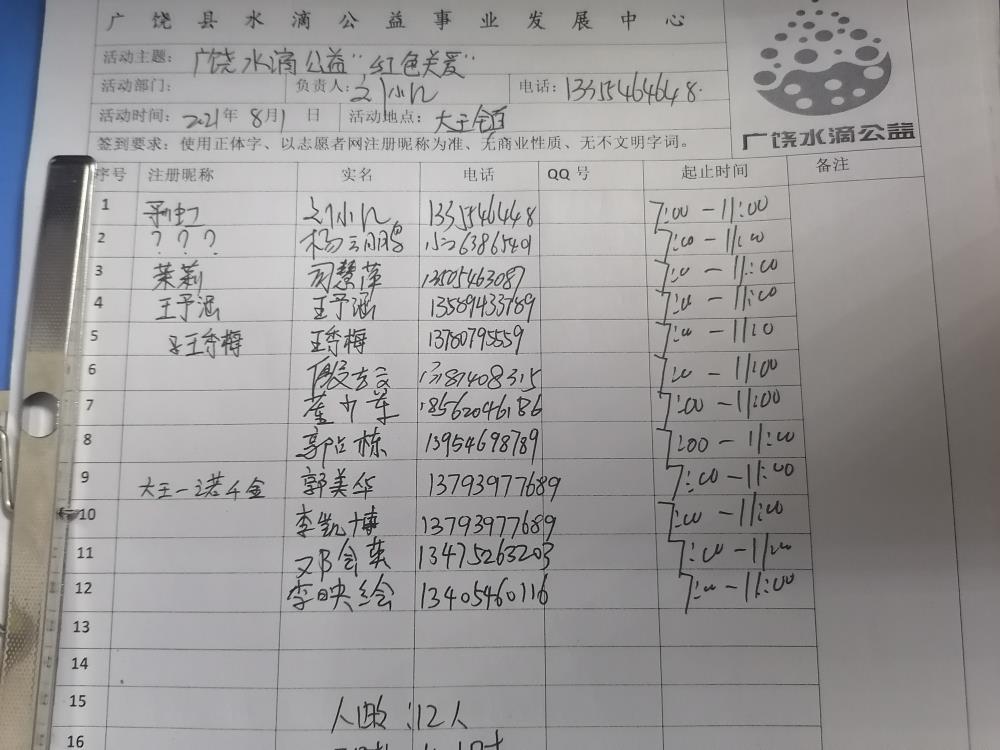 广饶县水滴公益事业发展中心
活动主题: 广饶水滴公益"红色关爱"
活动部门: 负责人: 刘小凡 电话: 13355464648.
活动时间: 2021年 8月1 日 活动地点: 大王镇
签到要求: 使用正体字、以志愿者网注册昵称为准、无商业性质、无不文明字词。
广饶水滴公益
序号 注册昵称 实名 电话 QQ 号 起止时间 备注
1 刘小凡 1335546448 7:00-11:00
2 ? ? ? 杨 鹏 7:00-11:00
3 茉莉 司慧萍 13505463087 7:00-11:00
4 王予涵 王予涵 13589433789 7:00-11:00
5 王秀梅 王秀梅 13780795559 7:00-11:00
6 7:00-11:00
7 18562046186 7:00-11:00
8 郭占栋 13954698789 7:00-11:00
9 大王一诺千金 郭美华 13793977689 7:00-11:00
10 李凯博 13793977689 7:00-11:00
11 邓会英 13475263203 7:00-11:00
12 李映绘 13405460116 7:00-11:00
13
14
15 人数:12人
16